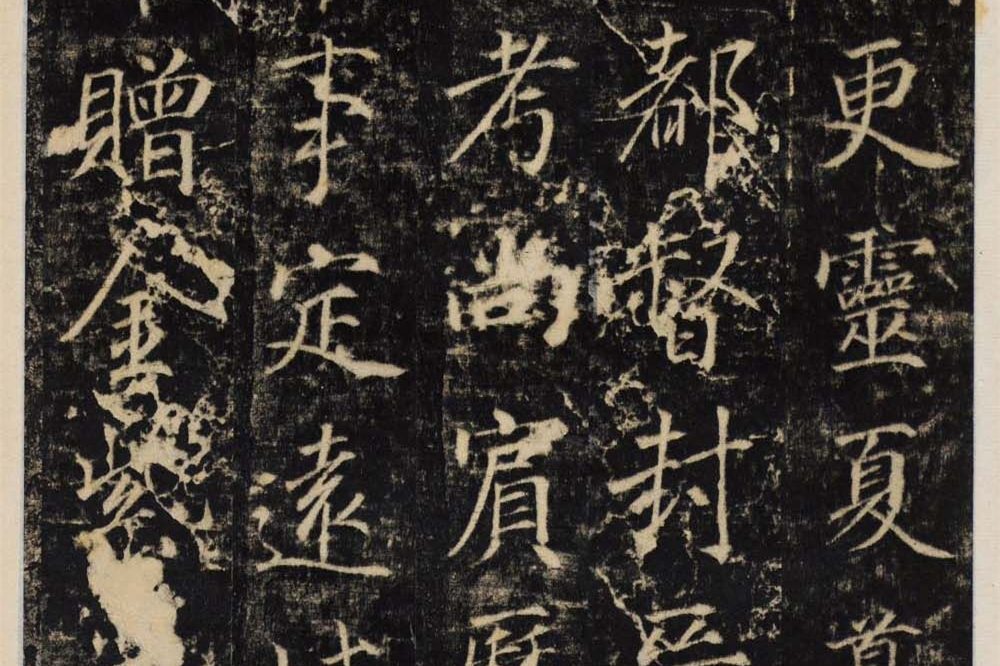 更靈夏
都督封
考尚賔
事定遠
贈金紫